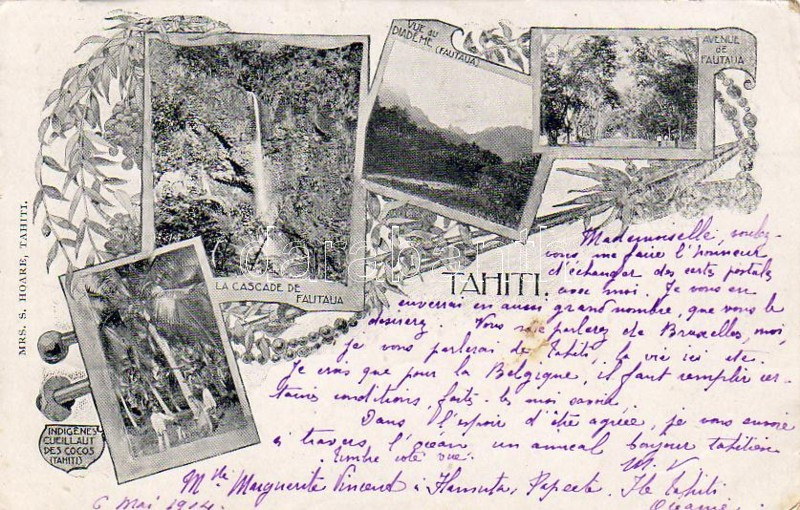 VUE DU
DIADÈME (FAUTAUA)
AVENUE DE
FAUTAUA
MRS. S. HOARE, TAHITI.
LA CASCADE DE
FAUTAUA
TAHITI.
INDIGÈNES
CUEILLAUT
DES COCOS
(TAHITI)
darabanth
Mademoiselle, voulez-
vous me faire l'honneur
d'échanger des cartes postales
avec moi. Je vous en
enverrai en aussi grand nombre, que vous le
désirerez. Vous me parlerez de Bruxelles, moi,
je vous parlerai de Tahiti, la vie ici etc.
Je crois que pour la Belgique, il faut remplir cer-
taines conditions, faites-les moi
Dans l'espoir d'être agréée, je vous envoie
à travers, l'océan un amical bonjour tahitien
Timbre coté vue. M. V
Marguerite Vincent à Papeete, Ile Tahiti
6 Mai 1904. Océanie